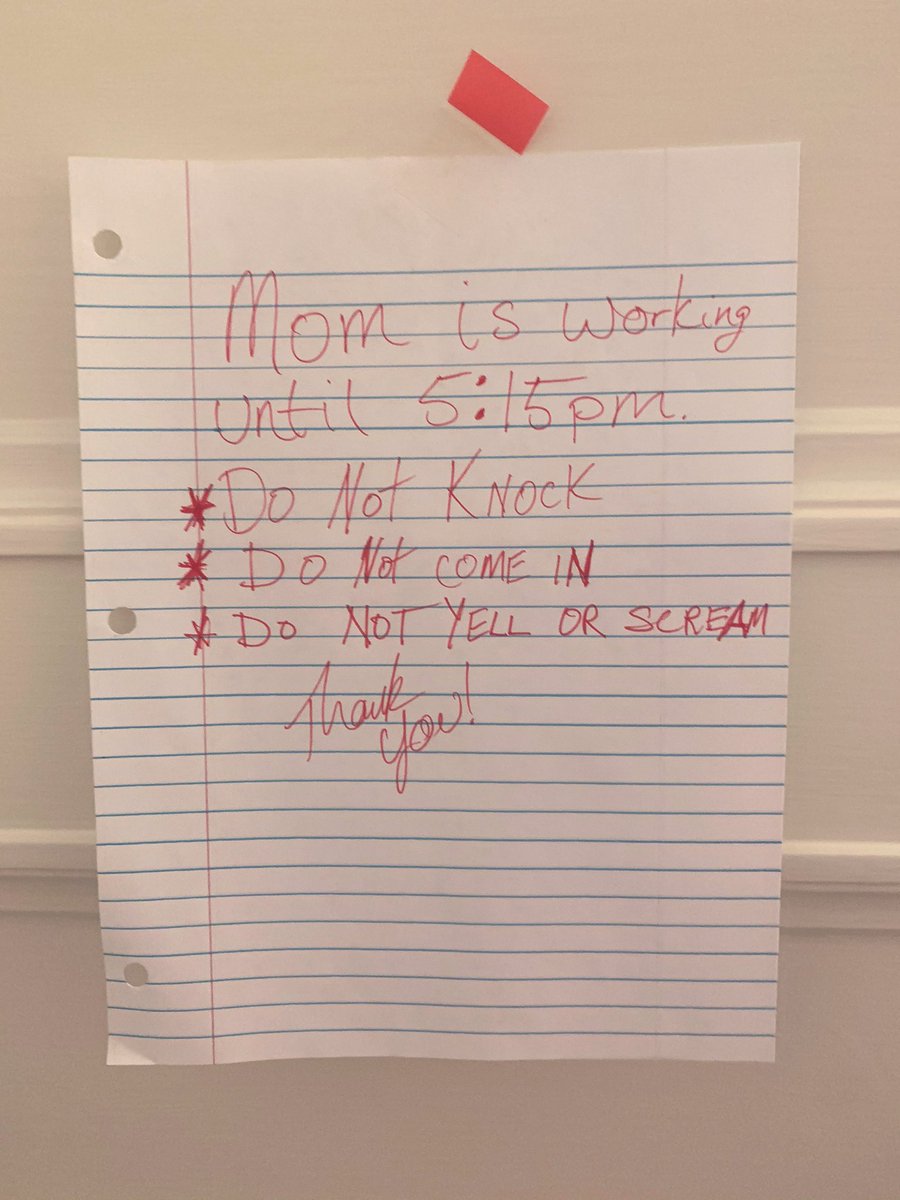 Mom is working
until 5:15pm.
* Do Not Knock
* Do Not COME IN
* DO NOT YELL OR SCREAM
Thank
you!